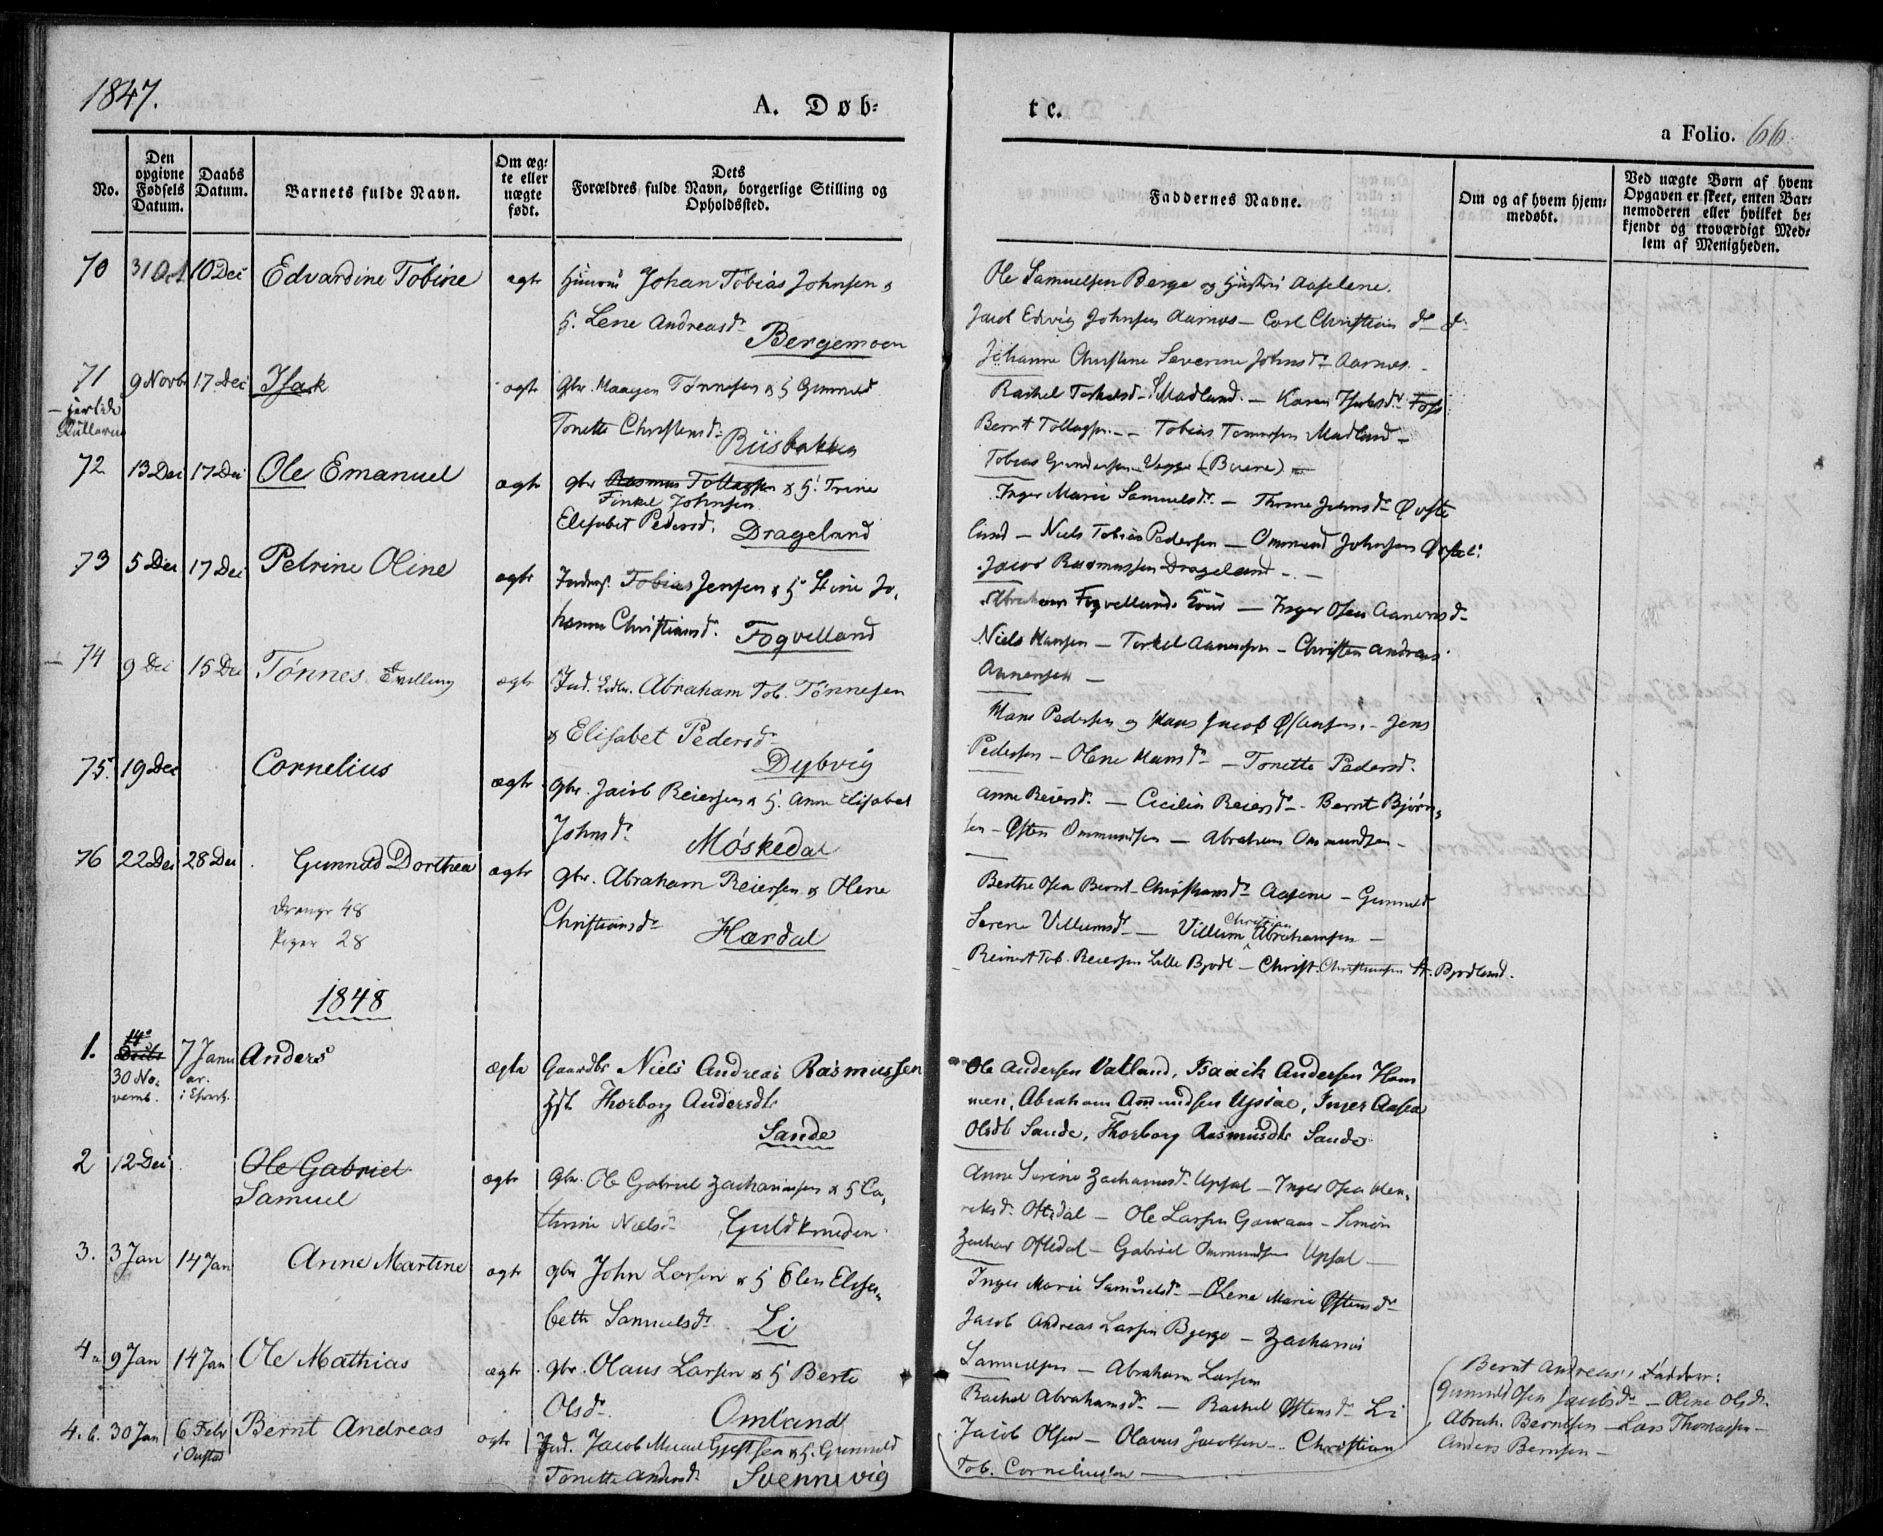 1847.
A. Døb-
te.
a Folio. 66.
No.
Den opgivne Fødsels Datum.
Daabs Datum.
Barnets fulde Navn.
Om æg-te eller uægte født.
Dets Forældres fulde Navn, borgerlige Stilling og Opholdssted.
Faddernes Navne.
Om og af hvem hjem-medøbt.
Ved uægte Børn af hvem Opgaven er skeet, enten Bar-nemoderen eller hvilket be-kjendt og troværdigt Med-lem af Menigheden.
70 31 Oct 10 Dec Edvardine Tobine ægte Johan Tobias Johnsen &
H. Lene Andreasd.
Bergemoen
Ole Samuelsen Berge og Hustru Aaselene.
Jacob Edvig Johnsen Aarnes – Carl Christian do
Johanne Christine Severine Johnsd. Aarnes
71 9 Novbr 17 Dec Isak ægte Gbr. Maagen Tønnesen & H Gunnild
Tonette Christensd.
Riisbakken
Rachel Terkelsd. Madland. – Karen Isaksd. Foss
Bernt Tollagsen – Tobias Tønnesen Madland –
Tobias Gundersen
72 13 Dec 17 Dec Ole Emanuel ægte gbr. Rasmus Tollagsen & H. Trine
Finkel Johnsen
Elisabet Pedersd. Drageland
Inger Marie Samuelsd. – Thrine Johnsd. Øvste
land – Niels Tobias Pedersen – Ommund Johnsen
Jacob Rasmussen Drageland –
73 5 Dec 17 Dec Petrine Oline ægte Inders. Tobias Jensen & H Stine Jo-
hanne Christiansd. Fogvelland
Abraham Fogvelland – Inger Osea Aanensd.
Niels Hansen – Terkel Aanensen – Christen Andreas
Aanensen –
74 9 Dec 15 Dec Tønnes Tvilling ægte Ind. Abraham Tob. Tønnesen
& Elisabet Pedersd.
Dybvig
Mons Pedersen og Hans Jacob Ostensen. – Jens
Pedersen – Olene Hansd. – Tonette Pedersd.
75. 19 Dec Cornelius ægte Gbr. Jacob Reiersen & H. Anne Elisabet
Johnsd. Møskedal
Anne Reiersd. – Cicilia Reiersd. – Bernt Bjørn-
sen – Østen Ommundsen – Abraham Ommundsen –
76 22 Dec 28 Dec Gunnild Dorthea ægte gbr. Abraham Reiersen & Olene
Christiansd. Hærdal
Drenge 48
Piger 28
Berthe Osea Bernt. Christiansd. Aasene – Gunnild
Serene Villumsd. – Villum Christian Abrahamsen –
Reinert Tob. Reiersen Lille Bjodl – Christ. Christiansen St. Bjodland.
1848
1. 30 No-vemb. 7 Janu ar. Anders ægte Gaardbr Niels Andreas Rasmussen
Hst Thorborg Andersdtr
Sande
Ole Andersen Vatland, Isaack Andersen Ham
men, Abraham Ammundsen Upsal, Inger Aasea
Olsdtr Sande, Thorborg Rasmusdtr Sande
2 12 Dec Ole Gabriel Samuel ægte Gbr. Ole Gabriel Zachariassen & H Ca-
thrine Nielsd. Guldkneden
Anne Serine Zachariasd. Upsal – Inger Osea Hen-
riksd. Oftedal – Ole Larsen – Simon
Zachar Oftedal – Gabriel Ommundsen Upsal –
3. 3 Jan 14 Jan Anne Martine ægte gbr John Larsen & H Elen Elisa-
beth Samuelsd. Li
Inger Marie Samuelsd. – Olene Marie Østensd.
Jacob Andreas Larsen Bjerge – Zacharias
Samuelsen – Abraham Larsen
4a 9 Jan 14 Jan Ole Mathias ægte gbr. Olaus Larsen & H Berte
Olsd. Omland
Rachel Abrahamsd. – Rachel Østensd. Li
Jacob Olsen – Olavus Jacobsen – Christian
Tob. Corneliussen
4.b. 30 Jan 6 Febr Bernt Andreas ægte Ind. Jacob Mical Gjertsen & H. Gunnild
Tonette Andersd. Svennevig
Bernt Andreas's Faddere:
Gunnild Osea Jacobsd. – Oline Olsd.
Abrah. Berntsen – Lars Thomasen –
Anders Berntsen –